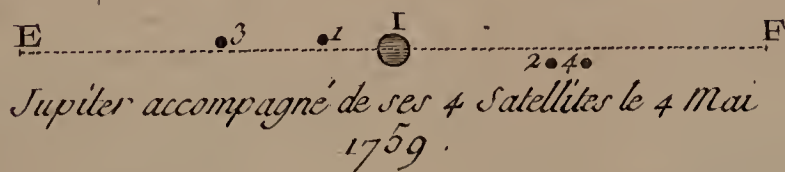 I
E 3 1 F
2 4
Jupiter accompagné de ses 4 Satellites le 4 Mai
1759.